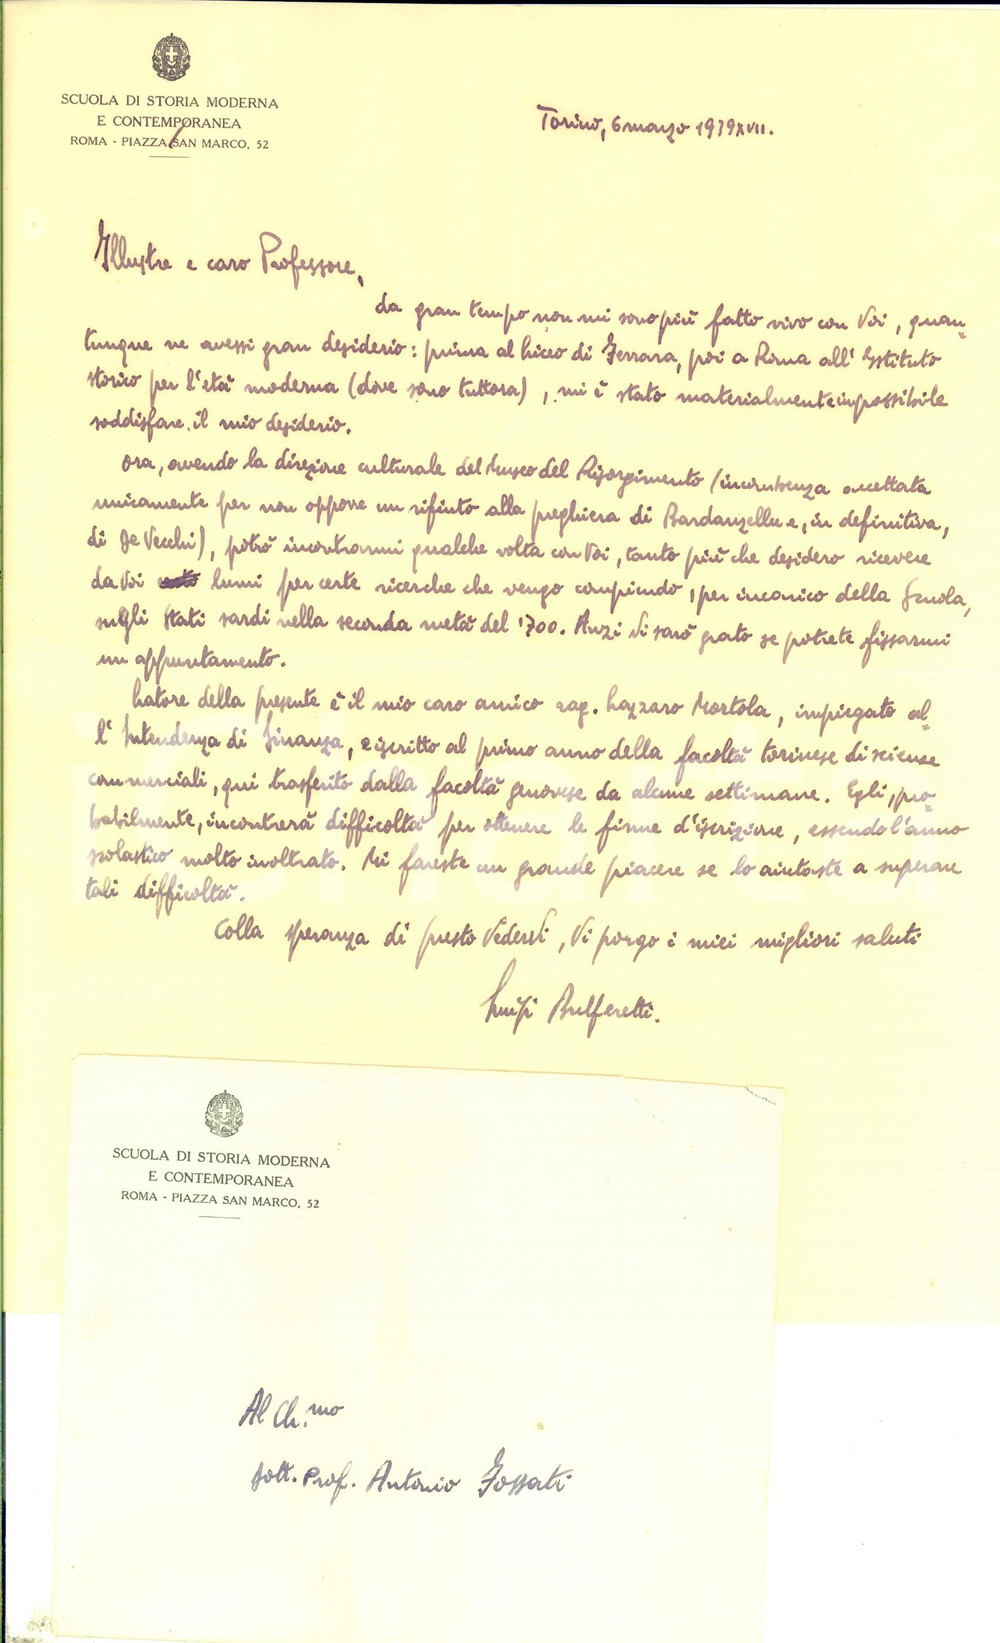 SCUOLA DI STORIA MODERNA
E CONTEMPORANEA
ROMA - PIAZZA SAN MARCO, 52
Torino, 6 marzo 1939 XVII.
Illustre e caro Professore,
da gran tempo non mi sono più fatto vivo con Voi, quan-
tunque ne avessi gran desiderio: prima al Liceo di Ferrara, poi a Roma all'Istituto
storico per l'età moderna (dove sono tuttora), mi è stato materialmente impossibile
soddisfare il mio desiderio.
Ora, avendo la direzione culturale del Museo del Risorgimento (incombenza accettata
unicamente per non opporre un rifiuto alla preghiera di Bardanzellu e, in definitiva,
di De Vecchi), potrò incontrarmi qualche volta con Voi, tanto più che desidero ricevere
da Voi lumi per certe ricerche che vengo compiendo, per incarico della Scuola,
sugli Stati sardi nella seconda metà del '700. Anzi Vi sarò grato se potrete fissarmi
un appuntamento.
Latore della presente è il mio caro amico rag. Lazzaro Mortola, impiegato al-
l'Intendenza di Finanza, e iscritto al primo anno della facoltà torinese di scienze
commerciali, qui trasferito dalla facoltà genovese da alcune settimane. Egli, pro-
babilmente, incontrerà difficoltà per ottenere le firme d'iscrizione, essendo l'anno
scolastico molto inoltrato. Mi fareste un grande piacere se lo aiutaste a superare
tali difficoltà.
Colla speranza di presto VederVi, Vi porgo i miei migliori saluti
Luigi Bulferetti.
SCUOLA DI STORIA MODERNA
E CONTEMPORANEA
ROMA - PIAZZA SAN MARCO, 52
Al Ch.mo
Dott. Prof. Antonio Fossati